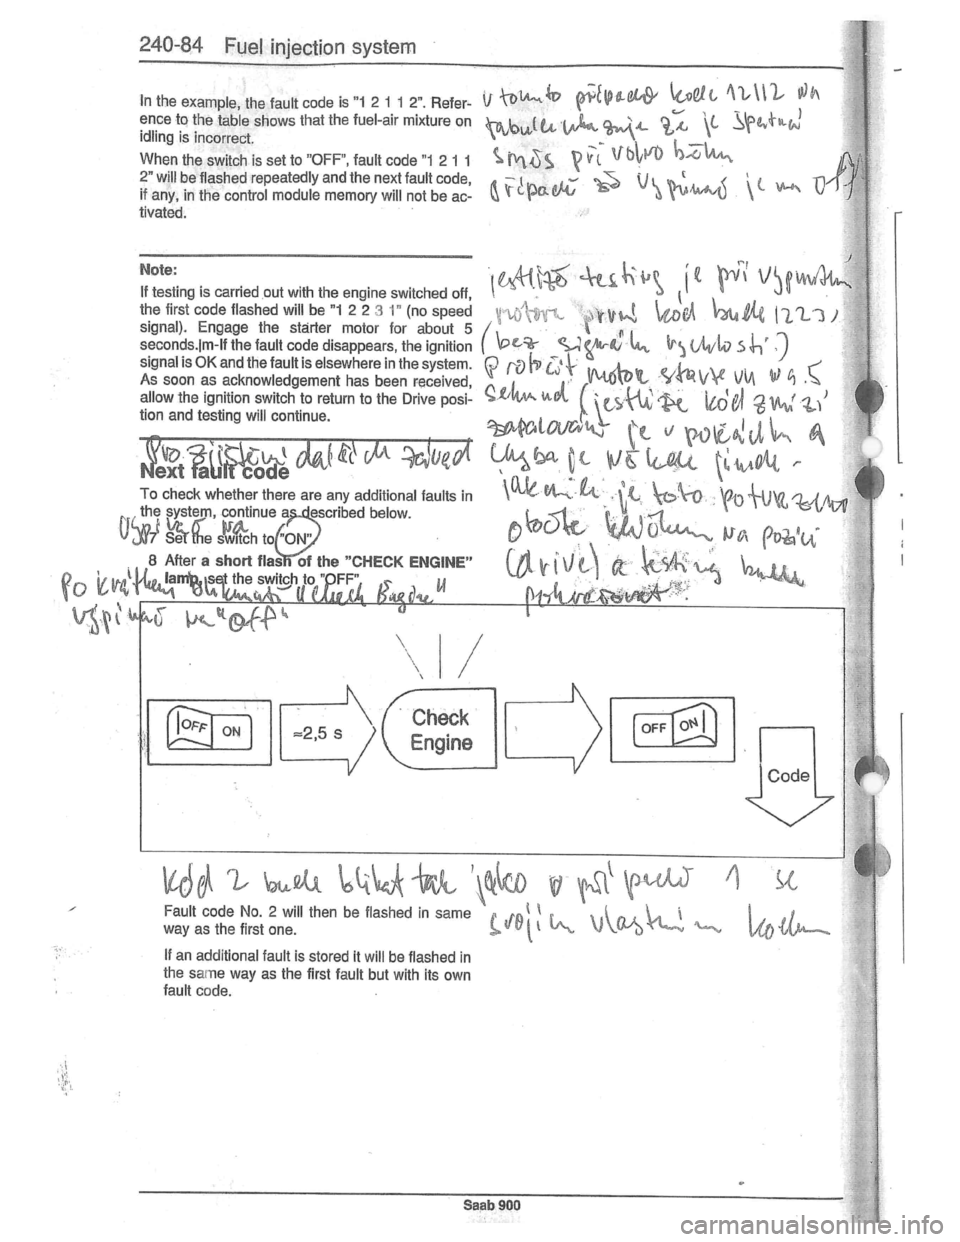 240-84 Fuel injection system
In the example, the fault code is "1 2 1 1 2". Refer-
ence to the table shows that the fuel-air mixture on
idling is incorrect.
When the switch is set to "OFF", fault code "1 2 1 1
2" will be flashed repeatedly and the next fault code,
if any, in the control module memory will not be ac-
tivated.
v tomto případě kode 12112 na
tabulce ukazuje že je špatná
směs při volno běhu
případě vypínač je na Off
Note:
If testing is carried out with the engine switched off,
the first code flashed will be "1 2 2 3 1" (no speed
signal). Engage the starter motor for about 5
seconds.|m-If the fault code disappears, the ignition
signal is OK and the fault is elsewhere in the system.
As soon as acknowledgement has been received,
allow the ignition switch to return to the Drive posi-
tion and testing will continue.
jestliže testing je při vypnutém
motoru první kod bude 12231
(bez signálu rychlosti.)
motor na 5
(jestliže kód zmizí
zapalování je v pořádku a
chyba je někde jinde -
je toto potvrzeno
otočte klíčkem na pozici
(drive) a testing bude
pokračovat
Pro zjištění dalších závad
Next fault code
To check whether there are any additional faults in
the system, continue as described below.
Vypínač na
7 Set the switch to "ON"
8 After a short flash of the "CHECK ENGINE"
lamp, set the switch to "OFF".
Po krátkém bliknutí "Check Engine"
vypínač na "Off"
OFF ON
≈2,5 s
Check
Engine
OFF ON
Code
kód 2 bude blikat tak jako v případě 1 se
svojím vlastním kodem
Fault code No. 2 will then be flashed in same
way as the first one.
If an additional fault is stored it will be flashed in
the same way as the first fault but with its own
fault code.
Saab 900
carmanualsonline.info